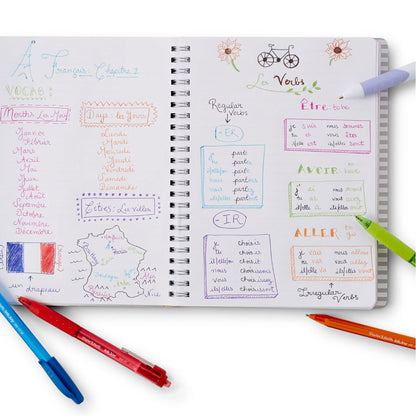 Français: Chapitre 2
VOCAB:
Months: Les Mois
Janvier
Février
Mars
Avril
Mai
Juin
Juillet
Août
Septembre
Octobre
Novembre
Décembre
Days: les Jours
Lundi
Mardi
Mercredi
Jeudi
Vendredi
Samedi
Dimanche
Cities: Les Villes
un drapeau
Nice
Les Verbs
Regular Verbs
-ER
je parle
tu parles
il/elle/on parle
nous parlons
vous parlez
ils/elles parlent
-IR
je choisis
tu choisis
il/elle/on choisit
nous choisissons
vous choisissez
ils/elles choisissent
Être: to be
je suis nous sommes
tu es vous êtes
il/elle est ils/elles sont
AVOIR: to have
j' ai nous avons
tu as vous avez
il/elle a ils/elles ont
ALLER: to go
je vais nous allons
tu vas vous allez
il/elle va ils/elles vont
Irregular Verbs